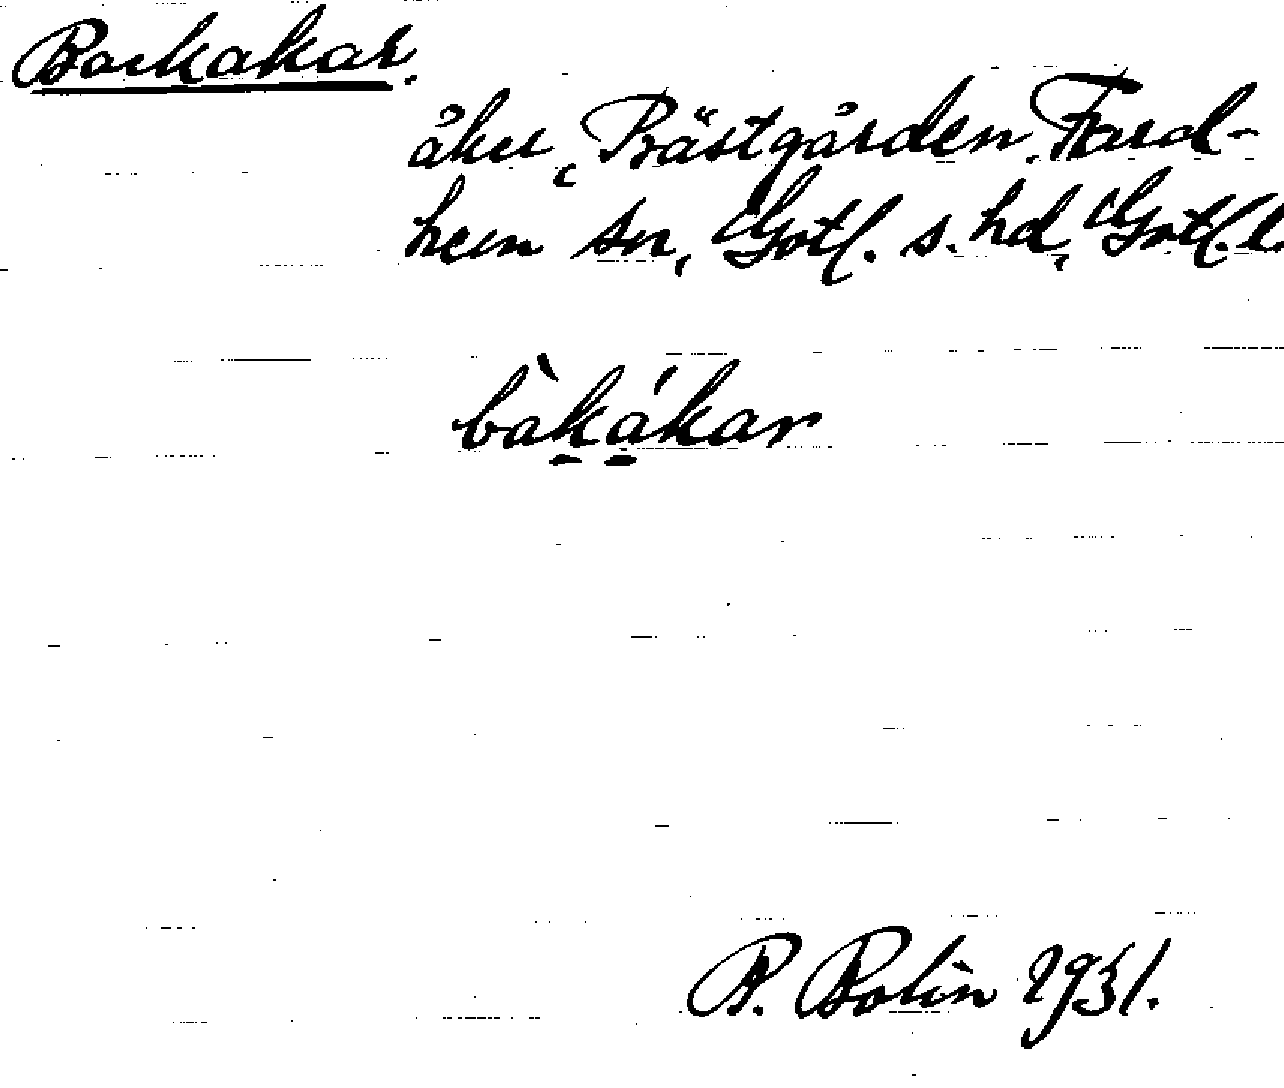 Backakar.
åker, Prästgården, Fard-
hem sn, Gotl. s. hd, Gotl. l.
bàkákar
P. Bolin 1931.